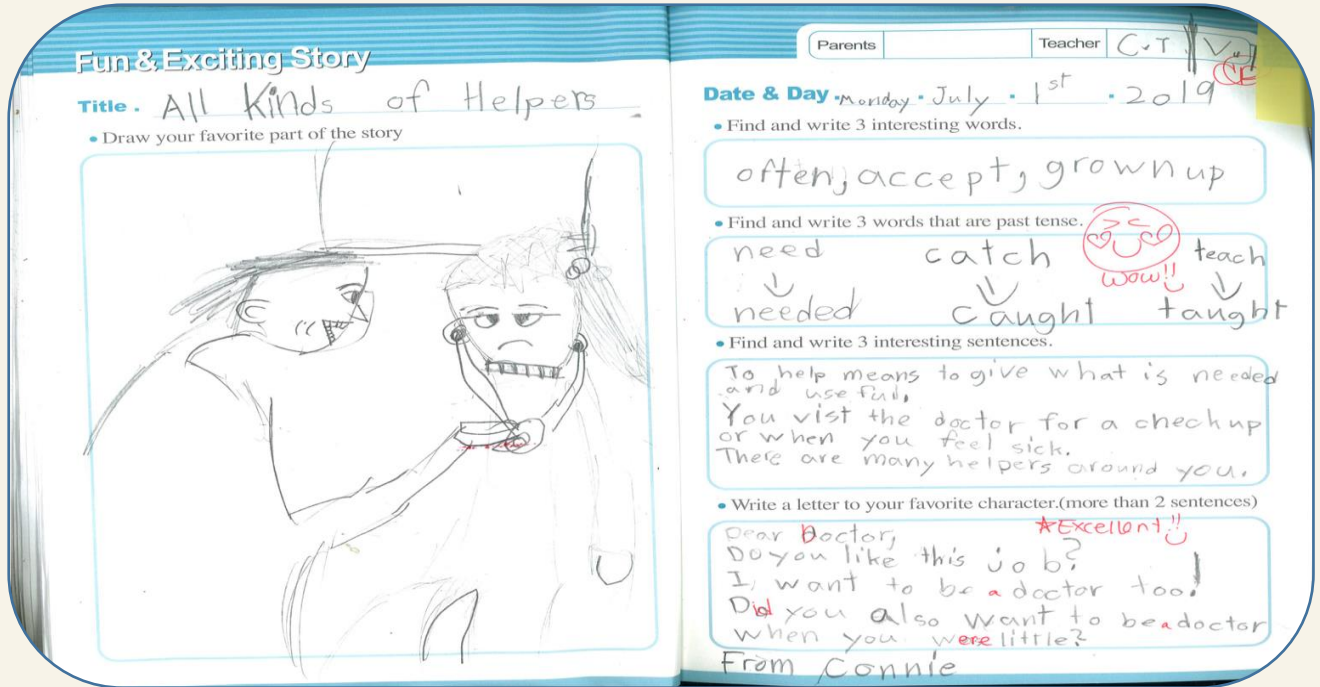 Fun & Exciting Story
Title. All Kinds of Helpers
• Draw your favorite part of the story
Parents
Teacher C.T
Date & Day • Monday • July • 1st • 2019
• Find and write 3 interesting words.
often, accept, grown up
• Find and write 3 words that are past tense.
need catch teach
wow!!
needed caught taught
• Find and write 3 interesting sentences.
To help means to give what is needed
and useful.
You vist the doctor for a check up
or when you feel sick.
There are many helpers around you.
• Write a letter to your favorite character.(more than 2 sentences)
★Excellent!!
Dear Doctor,
Do you like this job?
I want to be a doctor too!
Did you also want to be a doctor
when you were little?
From Connie